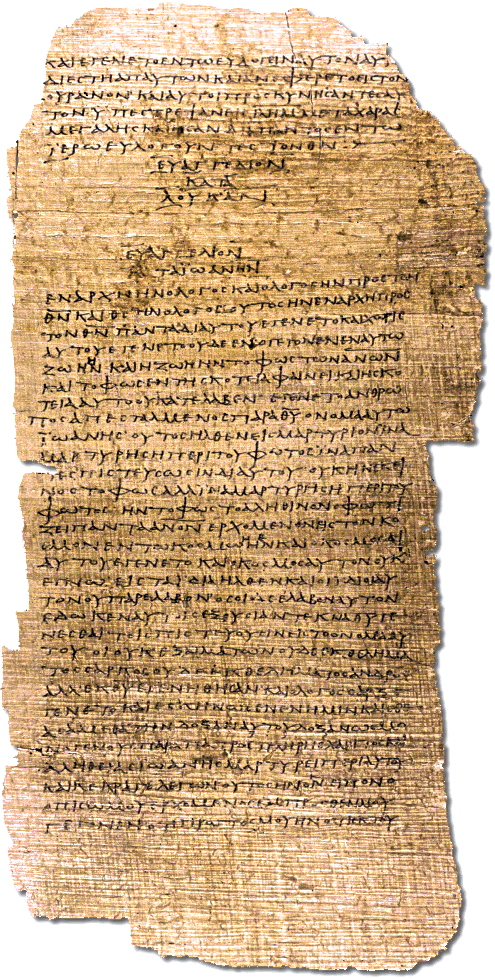 ΚΑΙ ΕΓΕΝΕΤΟ ΕΝ ΤΩ ΕΥΛΟΓΕΙΝ ΑΥΤΟΝ ΑΥ
ΔΙΕϹΤΗ ΑΠ ΑΥΤΩΝ ΚΑΙ ΑΝΕΦΕΡΕΤΟ ΕΙϹ ΤΟΝ
ΟΥΡΑΝΟΝ ΚΑΙ ΑΥΤΟΙ ΠΡΟϹΚΥΝΗϹΑΝΤΕϹ Α
ΤΟΝ ΥΠΕϹΤΡΕΨΑΝ ΜΕΤΑ ΧΑΡΑϹ
ΜΕΓΑΛΗϹ ΚΑΙ ΗϹΑΝ ΕΝ ΤΩ
ΪΕΡΩ ΕΥΛΟΓΟΥΝΤΕϹ ΤΟΝ ΘΝ
ΕΥΑΓΓΕΛΙΟΝ
ΚΑΤΑ
ΛΟΥΚΑΝ
ΕΥΑΓΓΕΛΙΟΝ
ΚΑΤΑ ΙΩΑΝΗΝ
ΕΝ ΑΡΧΗ ΗΝ Ο ΛΟΓΟϹ ΚΑΙ Ο ΛΟΓΟϹ ΗΝ ΠΡΟϹ ΤΟΝ
ΘΝ ΚΑΙ ΘϹ ΗΝ Ο ΛΟΓΟϹ ΟΥΤΟϹ ΗΝ ΕΝ ΑΡΧΗ ΠΡΟϹ
ΤΟΝ ΘΝ ΠΑΝΤΑ ΔΙ ΑΥΤΟΥ ΕΓΕΝΕΤΟ ΚΑΙ ΧΩΡΙϹ
ΑΥΤΟΥ ΕΓΕΝΕΤΟ ΟΥΔΕ ΕΝ Ο ΓΕΓΟΝΕΝ ΕΝ ΑΥΤΩ
ΖΩΗ ΗΝ ΚΑΙ Η ΖΩΗ ΗΝ ΤΟ ΦΩϹ ΤΩΝ ΑΝΩΝ
ΚΑΙ ΤΟ ΦΩϹ ΕΝ ΤΗ ϹΚΟΤΕΙΑ ΦΑΙΝΕΙ ΚΑΙ Η ϹΚΟ
ΤΕΙΑ ΑΥΤΟ ΟΥ ΚΑΤΕΛΑΒΕΝ ΕΓΕΝΕΤΟ ΑΝΘΡΩ
ΠΟϹ ΑΠΕϹΤΑΛΜΕΝΟϹ ΠΑΡΑ ΘΥ ΟΝΟΜΑ ΑΥΤΩ
ΪΩΑΝΗϹ ΟΥΤΟϹ ΗΛΘΕΝ ΕΙϹ ΜΑΡΤΥΡΙΟΝ ΙΝΑ
ΜΑΡΤΥΡΗϹΗ ΠΕΡΙ ΤΟΥ ΦΩΤΟϹ ΙΝΑ ΠΑΝ
ΤΕϹ ΠΙϹΤΕΥϹΩϹΙΝ ΔΙ ΑΥΤΟΥ ΟΥΚ ΗΝ ΕΚΕΙ
ΝΟϹ ΤΟ ΦΩϹ ΑΛΛ ΙΝΑ ΜΑΡΤΥΡΗϹΗ ΠΕΡΙ ΤΟΥ
ΦΩΤΟϹ ΗΝ ΤΟ ΦΩϹ ΤΟ ΑΛΗΘΙΝΟΝ Ο ΦΩΤΙ
ΖΕΙ ΠΑΝΤΑ ΑΝΟΝ ΕΡΧΟΜΕΝΟΝ ΕΙϹ ΤΟΝ ΚΟ
ϹΜΟΝ ΕΝ ΤΩ ΚΟϹΜΩ ΗΝ ΚΑΙ Ο ΚΟϹΜΟϹ ΔΙ
ΑΥΤΟΥ ΕΓΕΝΕΤΟ ΚΑΙ Ο ΚΟϹΜΟϹ ΑΥΤΟΝ ΟΥΚ
ΕΓΝΩ ΕΙϹ ΤΑ ΙΔΙΑ ΗΛΘΕΝ ΚΑΙ ΟΙ ΙΔΙΟΙ ΑΥ
ΤΟΝ ΟΥ ΠΑΡΕΛΑΒΟΝ ΟϹΟΙ ΔΕ ΕΛΑΒΟΝ ΑΥΤΟΝ
ΕΔΩΚΕΝ ΑΥΤΟΙϹ ΕΞΟΥϹΙΑΝ ΤΕΚΝΑ ΘΥ ΓΕ
ΝΕϹΘΑΙ ΤΟΙϹ ΠΙϹΤΕΥΟΥϹΙΝ ΕΙϹ ΤΟ ΟΝΟΜΑ ΑΥ
ΤΟΥ ΟΙ ΟΥΚ ΕΞ ΑΙΜΑΤΩΝ ΟΥΔΕ ΕΚ ΘΕΛΗΜΑ
ΤΟϹ ϹΑΡΚΟϹ ΟΥΔΕ ΕΚ ΘΕΛΗΜΑΤΟϹ ΑΝΔΡΟϹ
ΑΛΛ ΕΚ ΘΥ ΕΓΕΝΗΘΗϹΑΝ ΚΑΙ Ο ΛΟΓΟϹ ϹΑΡΞ Ε
ΓΕΝΕΤΟ ΚΑΙ ΕϹΚΗΝΩϹΕΝ ΕΝ ΗΜΙΝ ΚΑΙ ΕΘΕ
ΑϹΑΜΕΘΑ ΤΗΝ ΔΟΞΑΝ ΑΥΤΟΥ ΔΟΞΑΝ ΩϹ ΜΟ
ΝΟΓΕΝΟΥϹ ΠΑΡΑ ΠΑΤΡΟϹ ΠΛΗΡΗϹ ΧΑΡΙΤΟϹ ΚΑΙ
ΑΛΗΘΕΙΑϹ ΙΩΑΝΗϹ ΜΑΡΤΥΡΕΙ ΠΕΡΙ ΑΥΤΟΥ
ΚΑΙ ΚΕΚΡΑΓΕ ΛΕΓΩΝ ΟΥΤΟϹ ΗΝ ΟΝ ΕΙΠΟΝ Ο
ΟΠΙϹΩ ΜΟΥ ΕΡΧΟΜΕΝΟϹ ΕΜΠΡΟϹΘΕΝ ΜΟΥ
ΓΕΓΟΝΕΝ ΟΤΙ ΠΡΩΤΟϹ ΜΟΥ ΗΝ ΟΤΙ ΕΚ ΤΟΥ